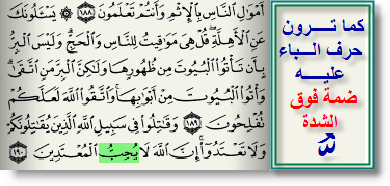 أَمْوَٰلِ ٱلنَّاسِ بِٱلْإِثْمِ وَأَنتُمْ تَعْلَمُونَ ١٨٨ ۞ يَسْـَٔلُونَكَ
عَنِ ٱلْأَهِلَّةِ ۖ قُلْ هِىَ مَوَٰقِيتُ لِلنَّاسِ وَٱلْحَجِّ ۗ وَلَيْسَ ٱلْبِرُّ
بِأَن تَأْتُوا۟ ٱلْبُيُوتَ مِن ظُهُورِهَا وَلَٰكِنَّ ٱلْبِرَّ مَنِ ٱتَّقَىٰ ۗ
وَأْتُوا۟ ٱلْبُيُوتَ مِنْ أَبْوَٰبِهَا ۚ وَٱتَّقُوا۟ ٱللَّهَ لَعَلَّكُمْ
تُفْلِحُونَ ١٨٩ وَقَٰتِلُوا۟ فِى سَبِيلِ ٱللَّهِ ٱلَّذِينَ يُقَٰتِلُونَكُمْ
وَلَا تَعْتَدُوٓا۟ ۚ إِنَّ ٱللَّهَ لَا يُحِبُّ ٱلْمُعْتَدِينَ ١٩٠
كما تـــرون
حرف الـباء
عليـــه
ضمة فوق
الشدة
ـُّ